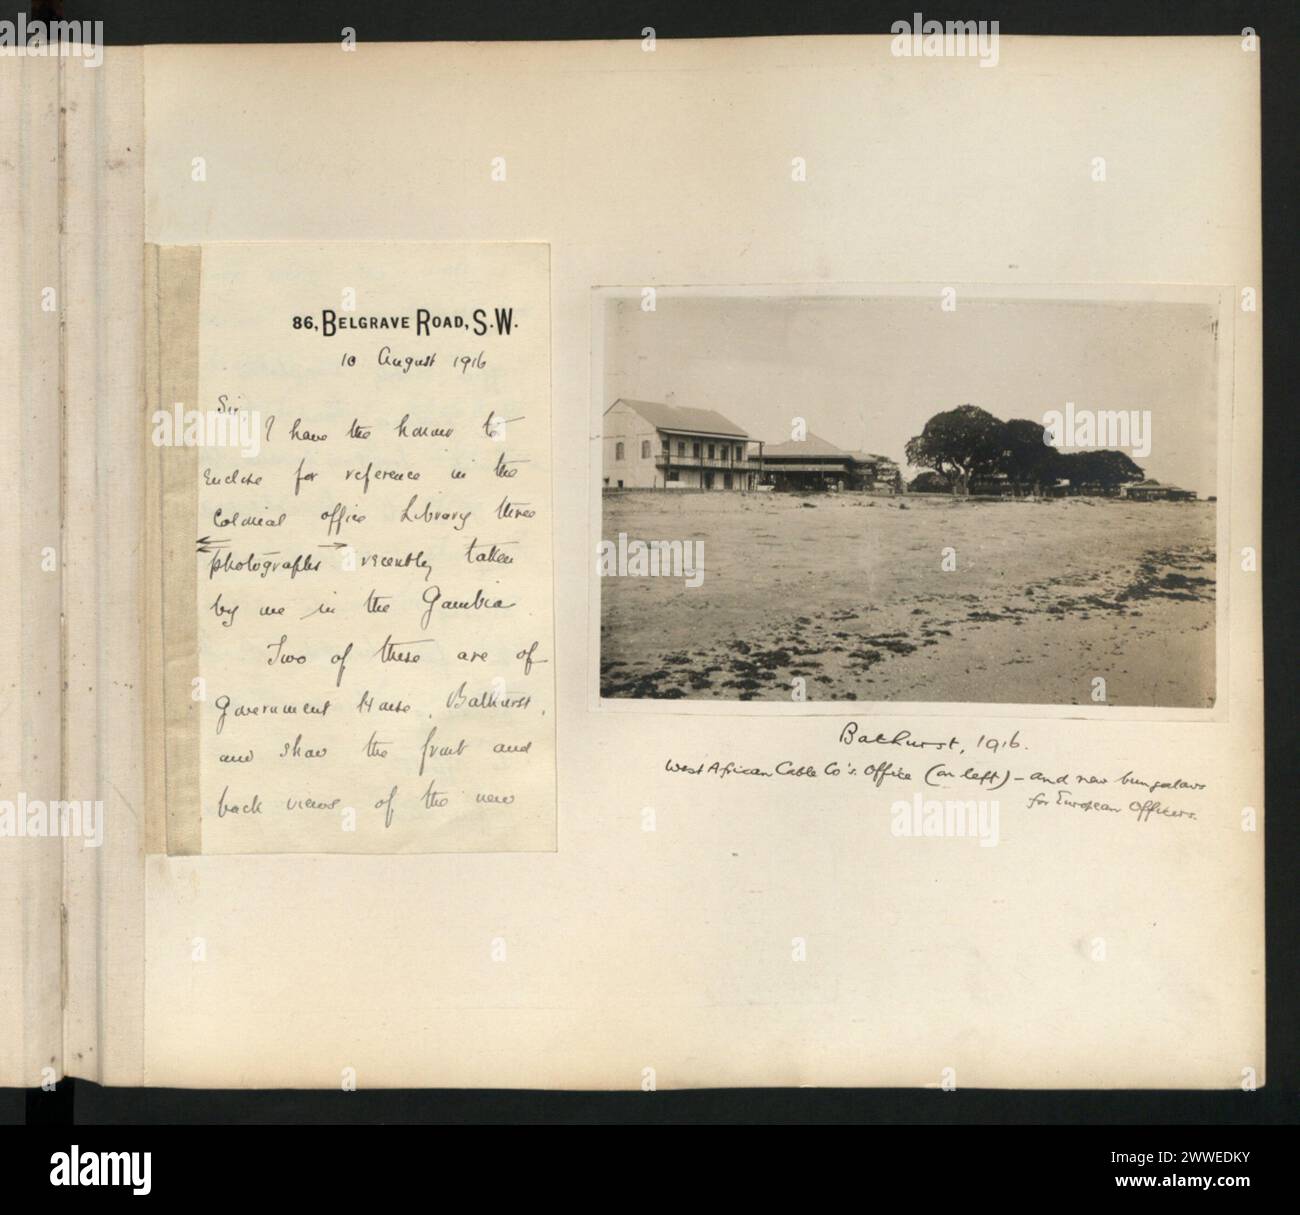 86, BELGRAVE ROAD, S.W.
10 August 1916
Sir,
I have the honour to
enclose for reference in the
Colonial Office Library three
photographs recently taken
by me in the Gambia.
Two of these are of
Government House, Bathurst,
and show the front and
back views of the new
Bathurst, 1916.
West African Cable Co's. Office (on left) – and new bungalows
for European Officers.
alamy
alamy
alamy
alamy
alamy
alamy
alamy
Image ID: 2WWEDKY
www.alamy.com